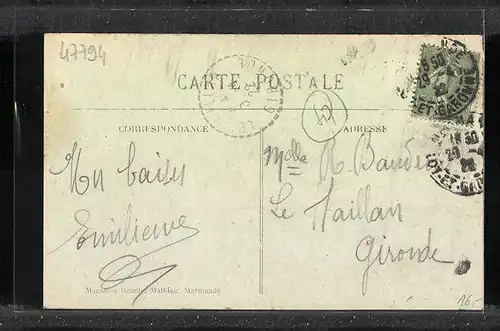 47794
CARTE POSTALE
CORRESPONDANCE
ADRESSE
Un baiser
Emilienne
Mdlle R. Baudet
Le Taillan
Gironde
Magasins Réunis, Mathieu, Marmande
ET-GARONNE
16,-